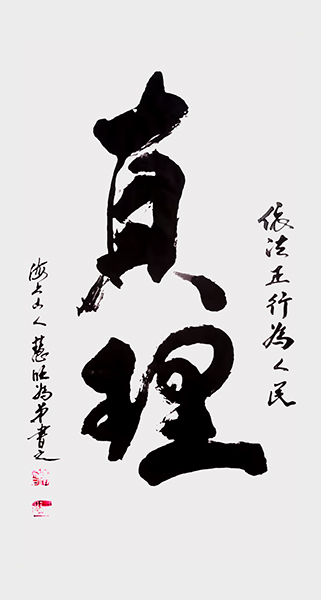 依法正行為人民
真理
海上山人慧旺為弟書之